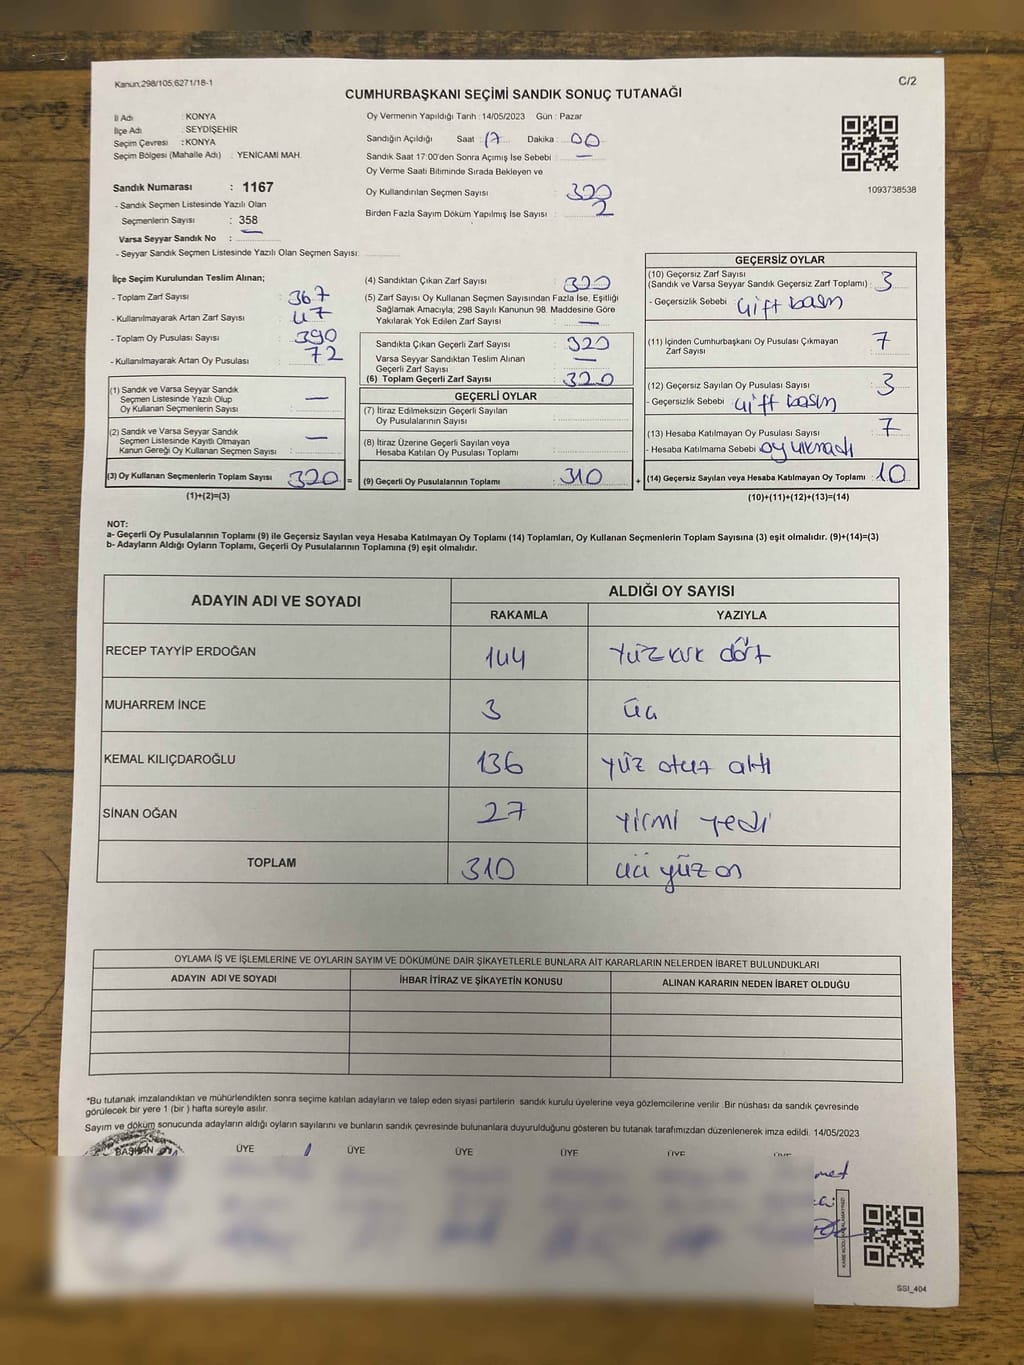 Kanun;298/105,6271/18-1
C/2
CUMHURBAŞKANI SEÇİMİ SANDIK SONUÇ TUTANAĞI
İl Adı : KONYA
İlçe Adı : SEYDİŞEHİR
Seçim Çevresi : KONYA
Seçim Bölgesi (Mahalle Adı) : YENİCAMİ MAH.
Sandık Numarası : 1167
- Sandık Seçmen Listesinde Yazılı Olan
Seçmenlerin Sayısı : 358
Varsa Seyyar Sandık No :
- Seyyar Sandık Seçmen Listesinde Yazılı Olan Seçmen Sayısı:
Oy Vermenin Yapıldığı Tarih :14/05/2023 Gün : Pazar
Sandığın Açıldığı Saat : 17 Dakika : 00
Sandık Saat 17:00'den Sonra Açımış İse Sebebi : —
Oy Verme Saati Bitiminde Sırada Bekleyen ve
Oy Kullandırılan Seçmen Sayısı : 320
Birden Fazla Sayım Döküm Yapılmış İse Sayısı : 2
1093738538
İlçe Seçim Kurulundan Teslim Alınan;
- Toplam Zarf Sayısı : 367
- Kullanılmayarak Artan Zarf Sayısı : 47
- Toplam Oy Pusulası Sayısı : 390
- Kullanılmayarak Artan Oy Pusulası : 72
(1) Sandık ve Varsa Seyyar Sandık
Seçmen Listesinde Yazılı Olup
Oy Kullanan Seçmenlerin Sayısı : —
(2) Sandık ve Varsa Seyyar Sandık
Seçmen Listesinde Kayıtlı Olmayan
Kanun Gereği Oy Kullanan Seçmen Sayısı : —
(3) Oy Kullanan Seçmenlerin Toplam Sayısı : 320 =
(1)+(2)=(3)
(4) Sandıktan Çıkan Zarf Sayısı : 320
(5) Zarf Sayısı Oy Kullanan Seçmen Sayısından Fazla İse, Eşitliği
Sağlamak Amacıyla, 298 Sayılı Kanunun 98. Maddesine Göre
Yakılarak Yok Edilen Zarf Sayısı : —
Sandıkta Çıkan Geçerli Zarf Sayısı : 320
Varsa Seyyar Sandıktan Teslim Alınan
Geçerli Zarf Sayısı : —
(6) Toplam Geçerli Zarf Sayısı : 320
GEÇERLİ OYLAR
(7) İtiraz Edilmeksizin Geçerli Sayılan
Oy Pusulalarının Sayısı :
(8) İtiraz Üzerine Geçerli Sayılan veya
Hesaba Katılan Oy Pusulası Toplamı :
(9) Geçerli Oy Pusulalarının Toplamı : 310 +
GEÇERSİZ OYLAR
(10) Geçersiz Zarf Sayısı
(Sandık ve Varsa Seyyar Sandık Geçersiz Zarf Toplamı) : 3
- Geçersizlik Sebebi : Çift basın
(11) İçinden Cumhurbaşkanı Oy Pusulası Çıkmayan
Zarf Sayısı : 7
(12) Geçersiz Sayılan Oy Pusulası Sayısı : 3
- Geçersizlik Sebebi : Çift basın
(13) Hesaba Katılmayan Oy Pusulası Sayısı : 7
- Hesaba Katılmama Sebebi : oy çıkmadı
(14) Geçersiz Sayılan veya Hesaba Katılmayan Oy Toplamı : 10
(10)+(11)+(12)+(13)=(14)
NOT:
a- Geçerli Oy Pusulalarının Toplamı (9) ile Geçersiz Sayılan veya Hesaba Katılmayan Oy Toplamı (14) Toplamları, Oy Kullanan Seçmenlerin Toplam Sayısına (3) eşit olmalıdır. (9)+(14)=(3)
b- Adayların Aldığı Oyların Toplamı, Geçerli Oy Pusulalarının Toplamına (9) eşit olmalıdır.
ADAYIN ADI VE SOYADI
ALDIĞI OY SAYISI
RAKAMLA YAZIYLA
RECEP TAYYİP ERDOĞAN 144 Yüz kırk dört
MUHARREM İNCE 3 üç
KEMAL KILIÇDAROĞLU 136 yüz otuz altı
SİNAN OĞAN 27 yirmi yedi
TOPLAM 310 üç yüz on
OYLAMA İŞ VE İŞLEMLERİNE VE OYLARIN SAYIM VE DÖKÜMÜNE DAİR ŞİKAYETLERLE BUNLARA AİT KARARLARIN NELERDEN İBARET BULUNDUKLARI
ADAYIN ADI VE SOYADI İHBAR İTİRAZ VE ŞİKAYETİN KONUSU ALINAN KARARIN NEDEN İBARET OLDUĞU
*Bu tutanak imzalandıktan ve mühürlendikten sonra seçime katılan adayların ve talep eden siyasi partilerin sandık kurulu üyelerine veya gözlemcilerine verilir .Bir nüshası da sandık çevresinde
görülecek bir yere 1 (bir ) hafta süreyle asılır.
Sayım ve döküm sonucunda adayların aldığı oyların sayılarını ve bunların sandık çevresinde bulunanlara duyurulduğunu gösteren bu tutanak tarafımızdan düzenlenerek imza edildi. 14/05/2023
BAŞKAN ÜYE ÜYE ÜYE ÜYE ÜYE ÜYE
SSI_404